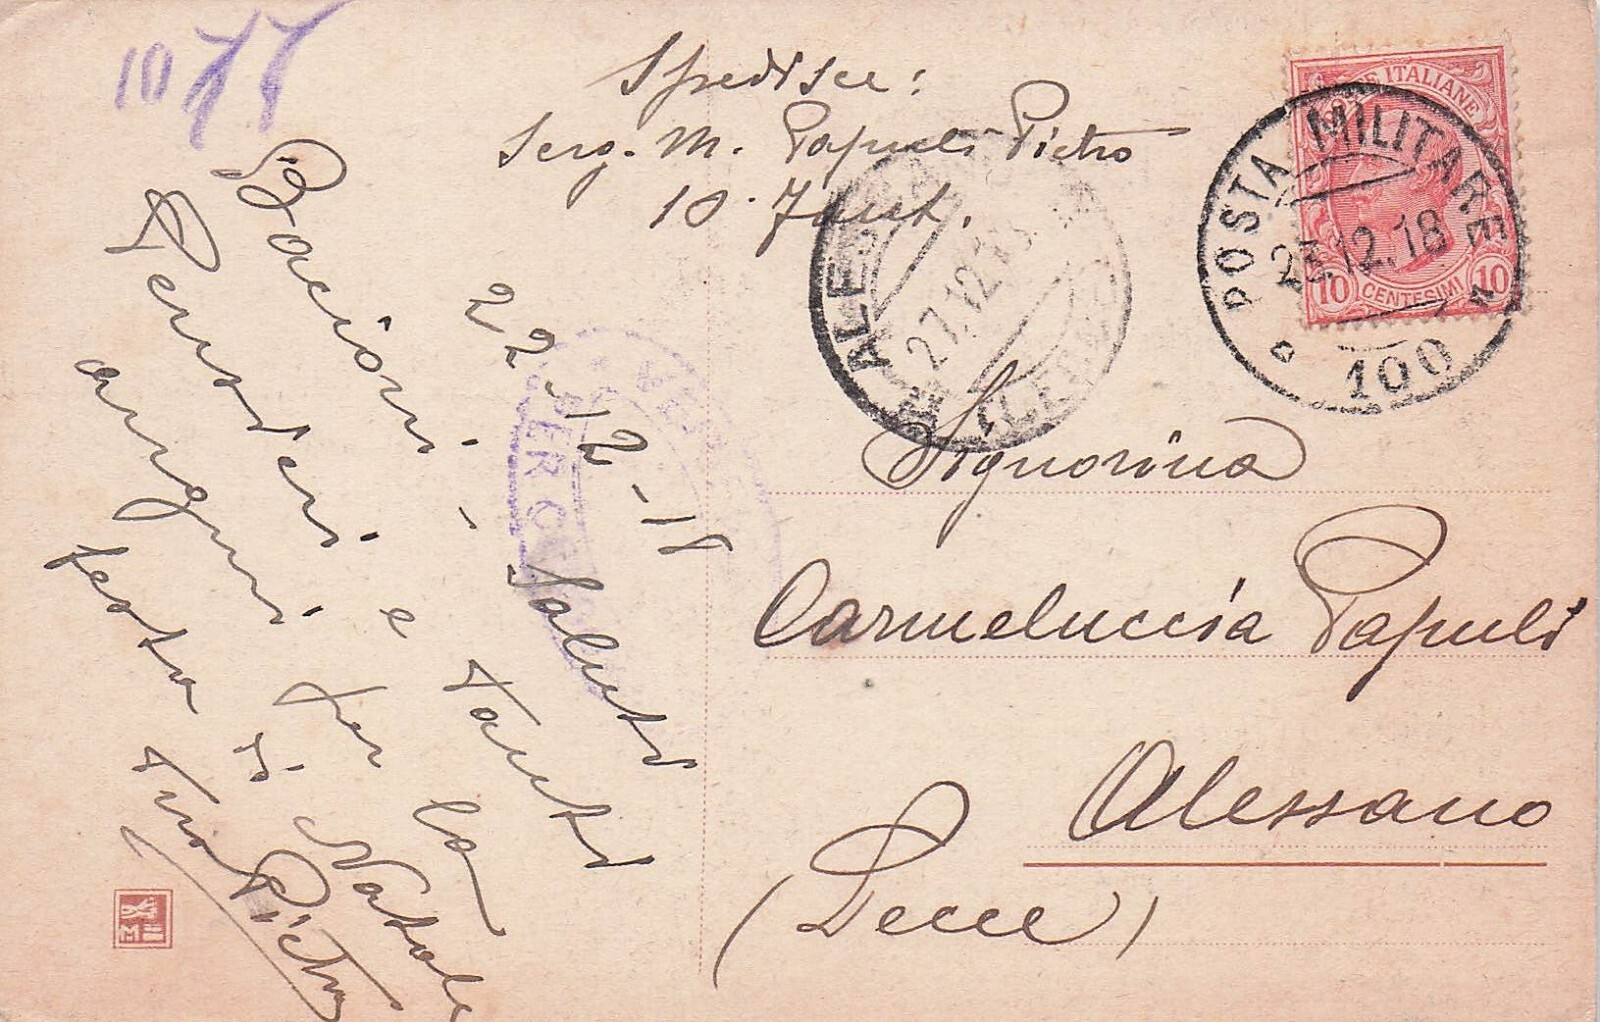 1077
Spedisce:
Serg. M. Papuli Pietro
10. Fant.
POSTE ITALIANE
10 CENTESIMI 10
POSTA MILITARE
23.12.18
100
ALESSANO
27.12.18
(LECCE)
VERIFICATO
22-12-18
Saluti
Bacioni
e tanti
Pensieri
auguri per la
festa di Natale
tuo Pietro
Signorina
Carmeluccia Papuli
Alessano
(Lecce)